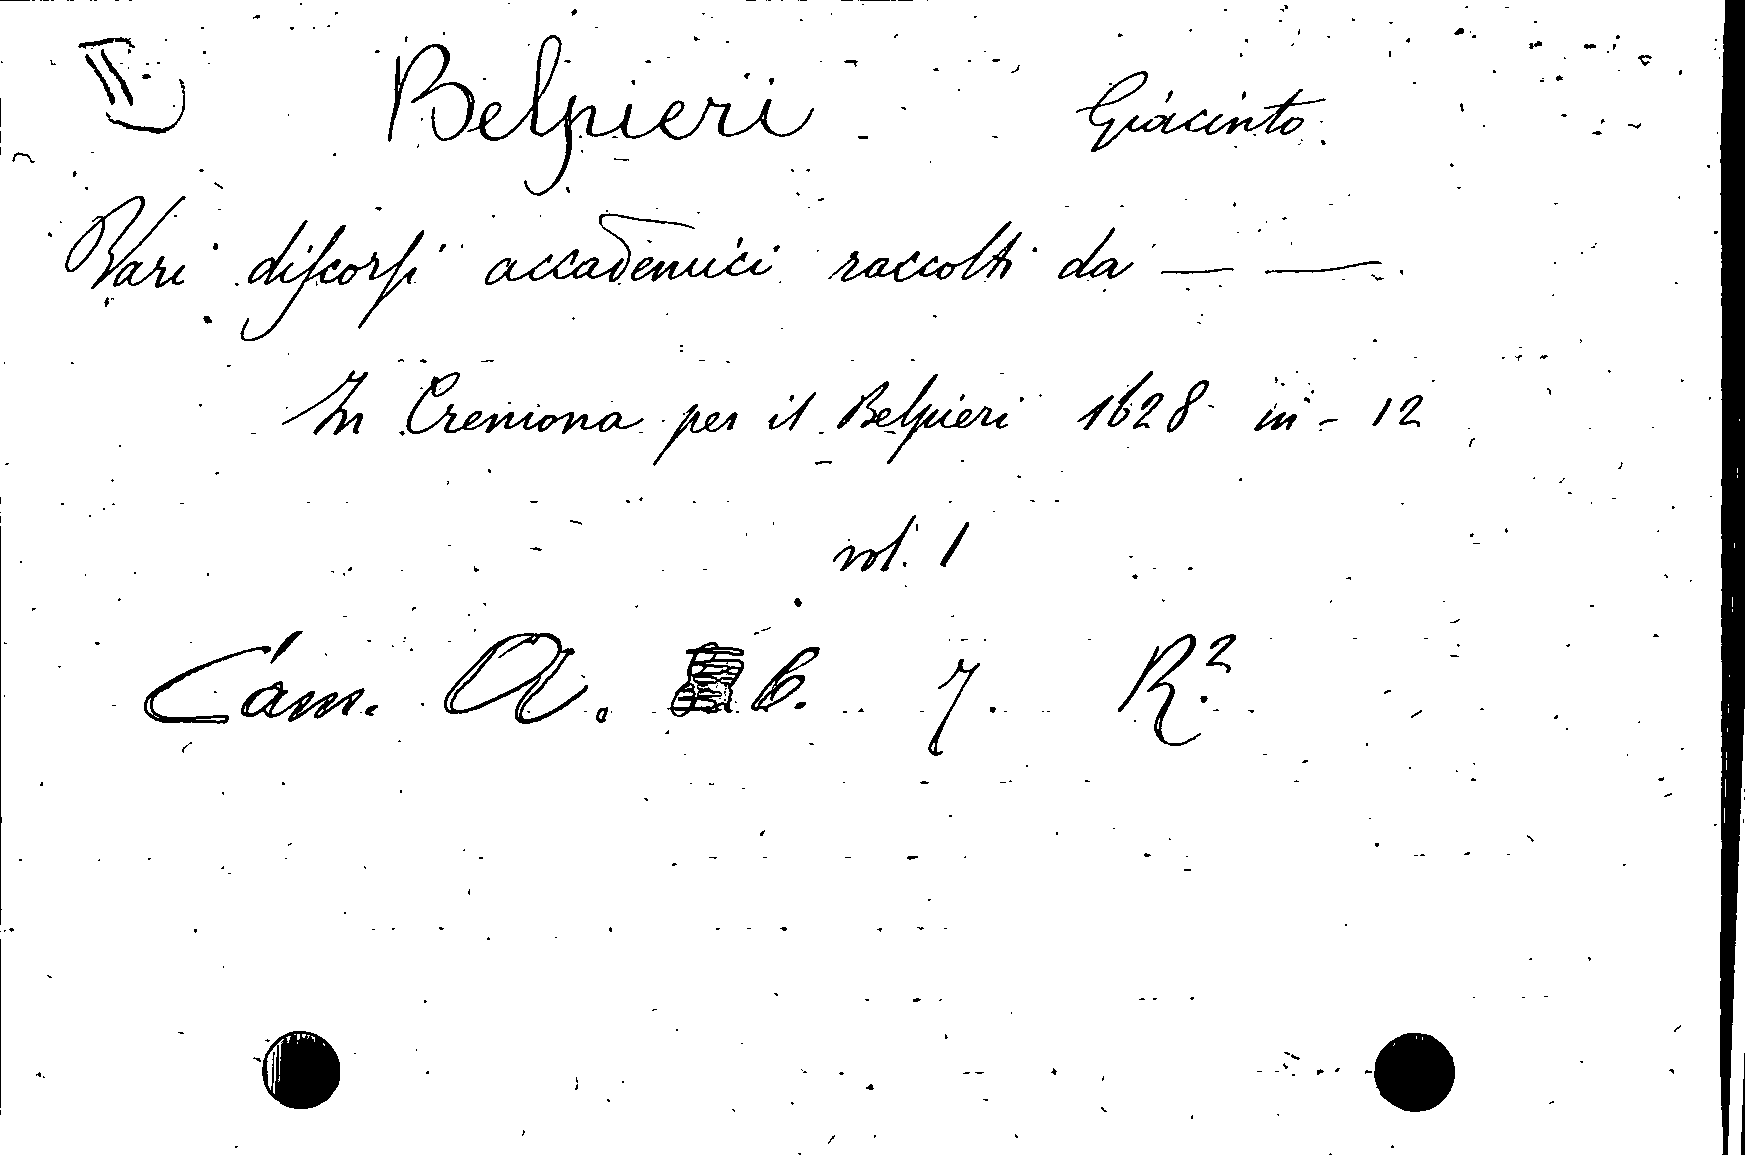 II. Belpieri Giacinto
Vari diſcorſi accademici raccolti da — —
In Cremona per il Belpieri 1628 in - 12
vol. 1
Cam. A. b. 7. R.2